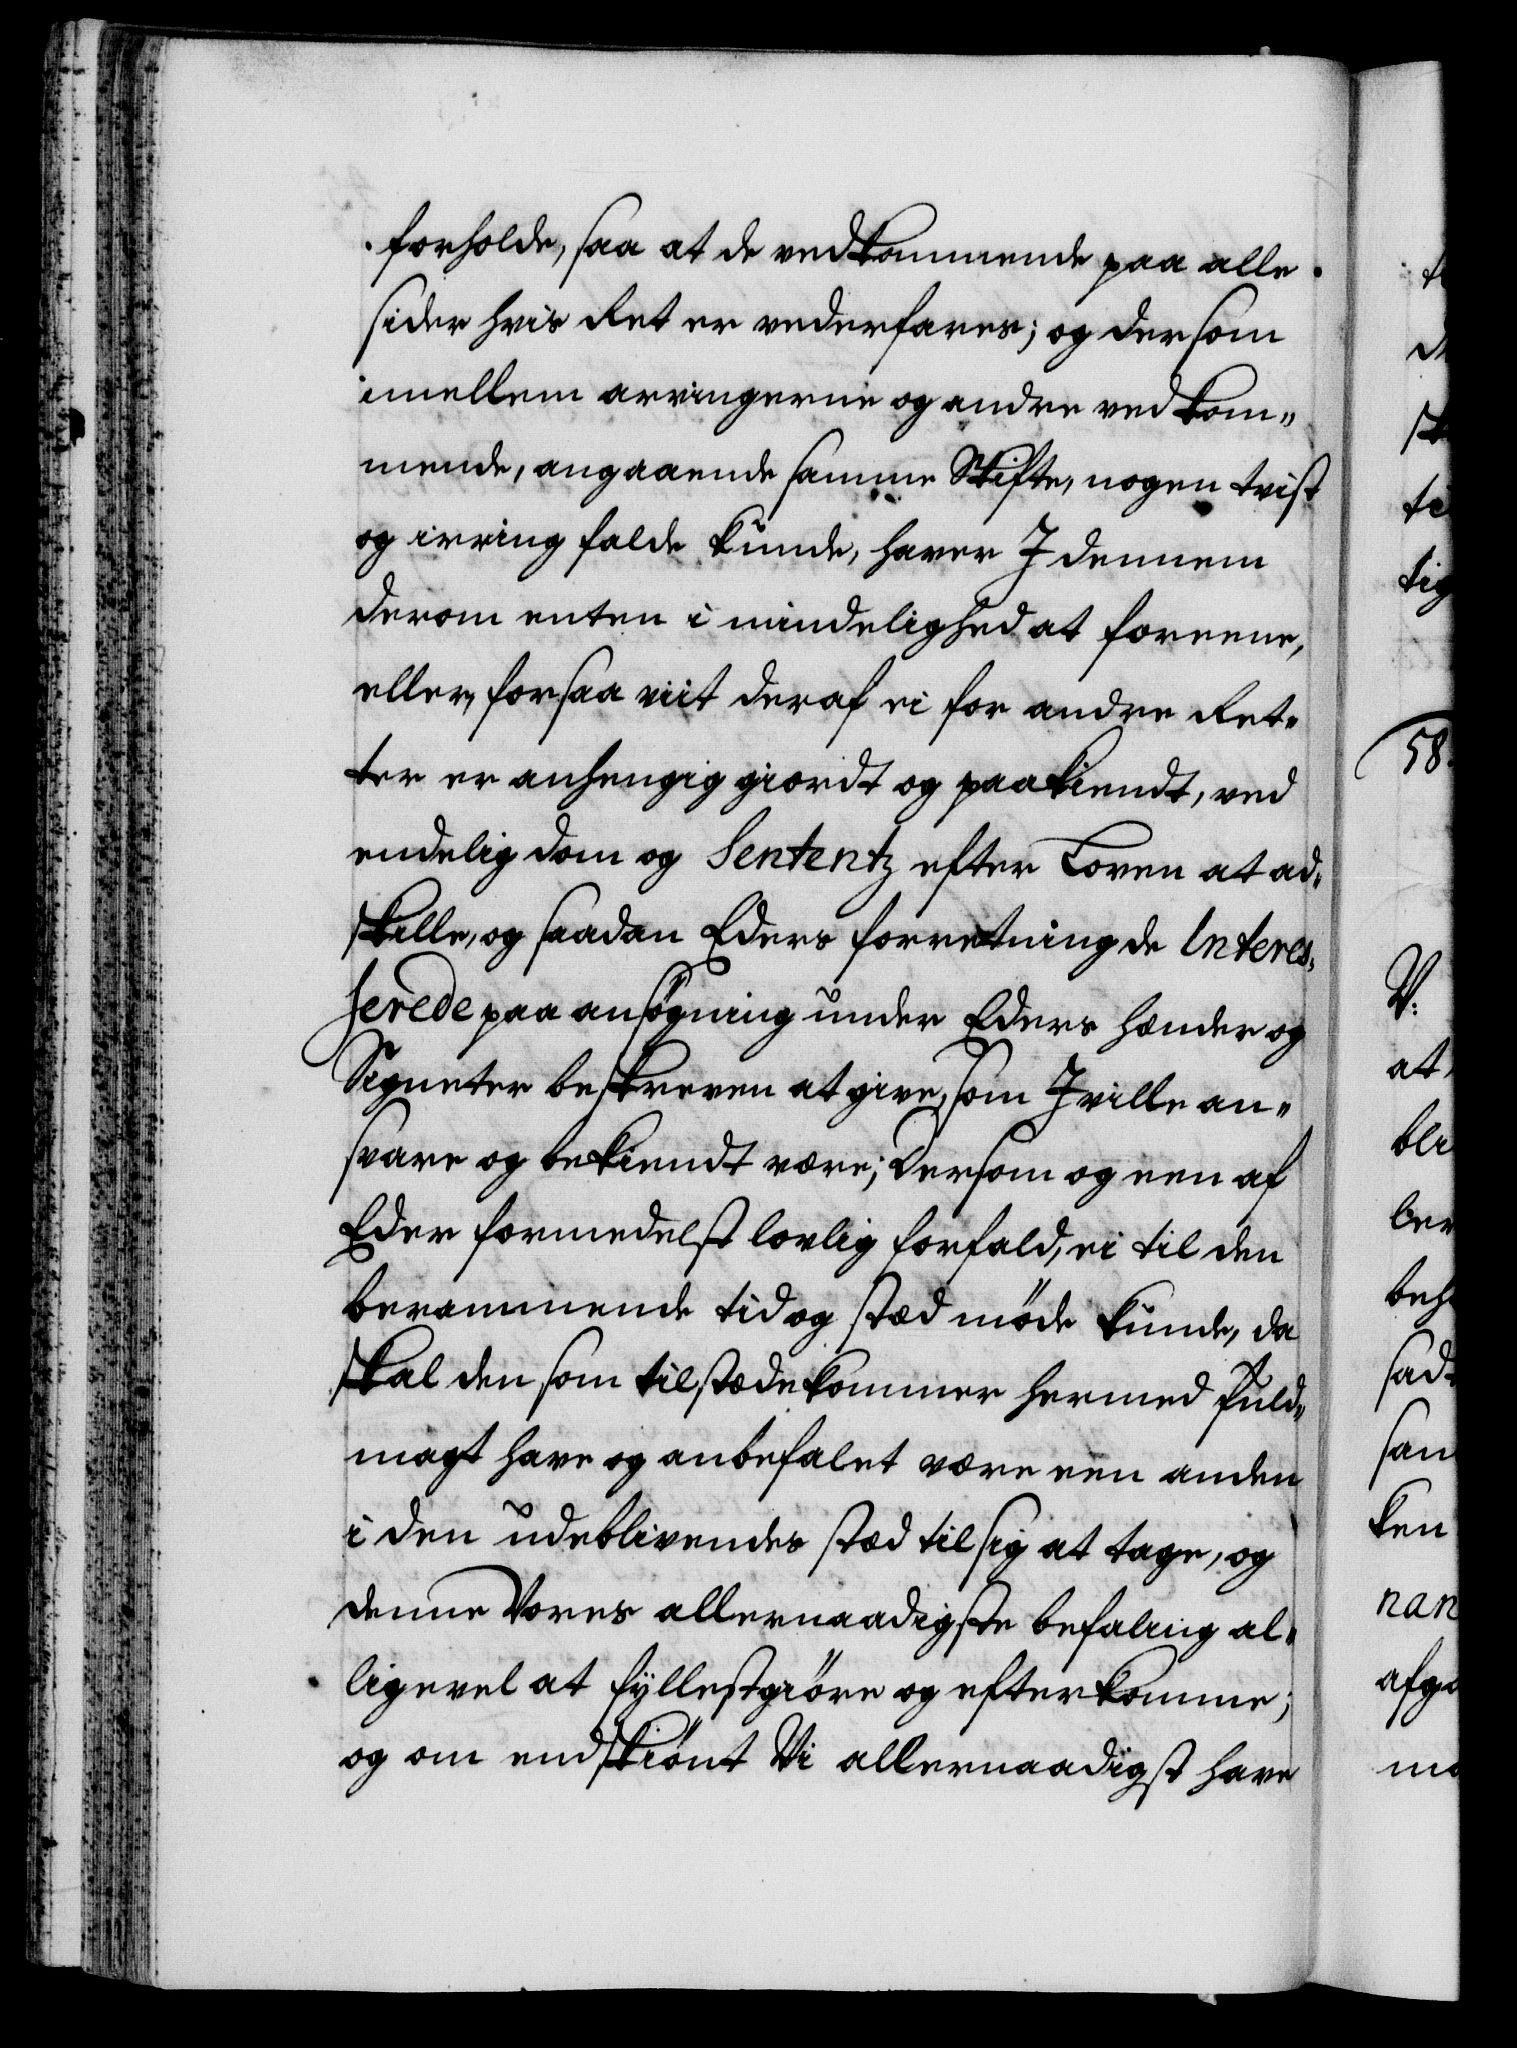 forholde, saa at de vedkommende paa alle
sider hvis Ret er vederfares; og dersom
imellem arvingerne og andre vedkom¬
mende, angaaende samme Skifte, nogen tvist
og irring falde kunde, haver I dennem
derom enten i mindelighed at foreene,
eller, forsaa viit deraf ei for andre Ret¬
ter er anhengig giordt og paakiendt, ved
endelig dom og Sententz efter Loven at ad¬
skille, og saadan Eders forretning de Interes¬
serede paa ansøgning under Eders hænder og
Signeter beskreven at give, som I ville an¬
svare og bekiendt være; Dersom og een af
Eder formedelst lovlig forfald, ei til den
berammende tid og stæd møde kunde, da
skal den som tilstædekommer hermed fuld¬
magt have og anbefalet være een anden
i den udeblivendes stæd til sig at tage, og
denne Vores allernaadigste befaling al¬
ligevel at fyllestgiøre og efterkomme;
og om endskiønt Vi allernaadigst have
58.
V:
at
bli
ber
beh
sad
sam
ken
nan
afga